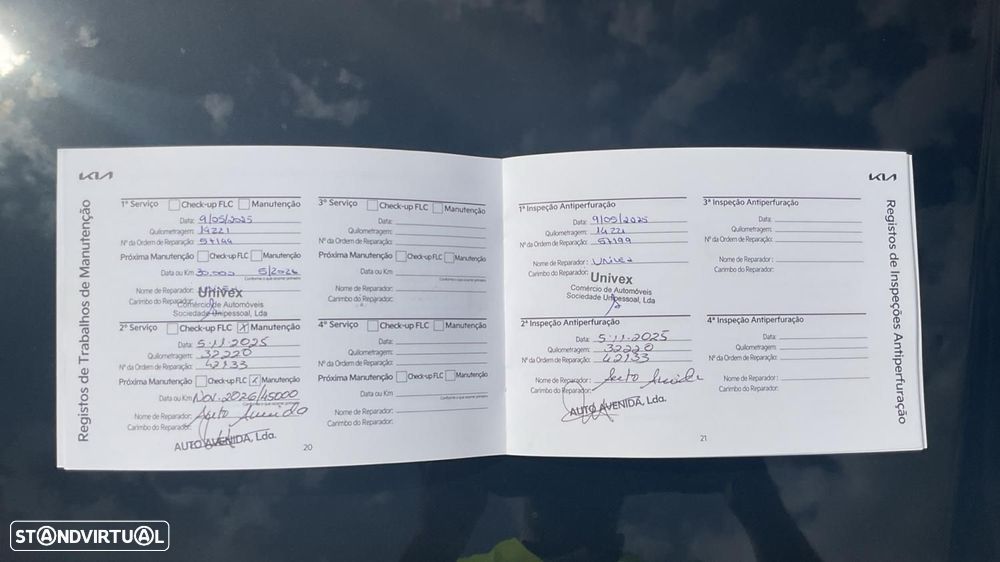 KIA
Registos de Trabalhos de Manutenção
1º Serviço Check-up FLC Manutenção
Data: 9/05/2025
Quilometragem: 14221
Nº da Ordem de Reparação: 57199
Próxima Manutenção Check-up FLC Manutenção
Data ou Km 30.000 5/2026
Conforme o que ocorrer primeiro
Nome de Reparador:
Carimbo do Reparador:
Univex
Comércio de Automóveis
Sociedade Unipessoal, Lda
2º Serviço Check-up FLC X Manutenção
Data: 5.11.2025
Quilometragem: 32220
Nº da Ordem de Reparação: 42133
Próxima Manutenção Check-up FLC X Manutenção
Data ou Km Nov. 2026/45000
Conforme o que ocorrer primeiro
Nome de Reparador: Auto Avenida
Carimbo do Reparador:
AUTO AVENIDA, Lda.
3º Serviço Check-up FLC Manutenção
Data:
Quilometragem:
Nº da Ordem de Reparação:
Próxima Manutenção Check-up FLC Manutenção
Data ou Km
Conforme o que ocorrer primeiro
Nome de Reparador:
Carimbo do Reparador:
4º Serviço Check-up FLC Manutenção
Data:
Quilometragem:
Nº da Ordem de Reparação:
Próxima Manutenção Check-up FLC Manutenção
Data ou Km
Conforme o que ocorrer primeiro
Nome de Reparador:
Carimbo do Reparador:
20
KIA
Registos de Inspeções Antiperfuração
1ª Inspeção Antiperfuração
Data: 9/05/2025
Quilometragem: 14221
Nº da Ordem de Reparação: 57199
Nome de Reparador: Univex
Carimbo do Reparador:
Univex
Comércio de Automóveis
Sociedade Unipessoal, Lda
2ª Inspeção Antiperfuração
Data: 5.11.2025
Quilometragem: 32220
Nº da Ordem de Reparação: 42133
Nome de Reparador: Auto Avenida
Carimbo do Reparador:
AUTO AVENIDA, Lda.
3ª Inspeção Antiperfuração
Data:
Quilometragem:
Nº da Ordem de Reparação:
Nome de Reparador:
Carimbo do Reparador:
4ª Inspeção Antiperfuração
Data:
Quilometragem:
Nº da Ordem de Reparação:
Nome de Reparador:
Carimbo do Reparador:
21
STANDVIRTUAL